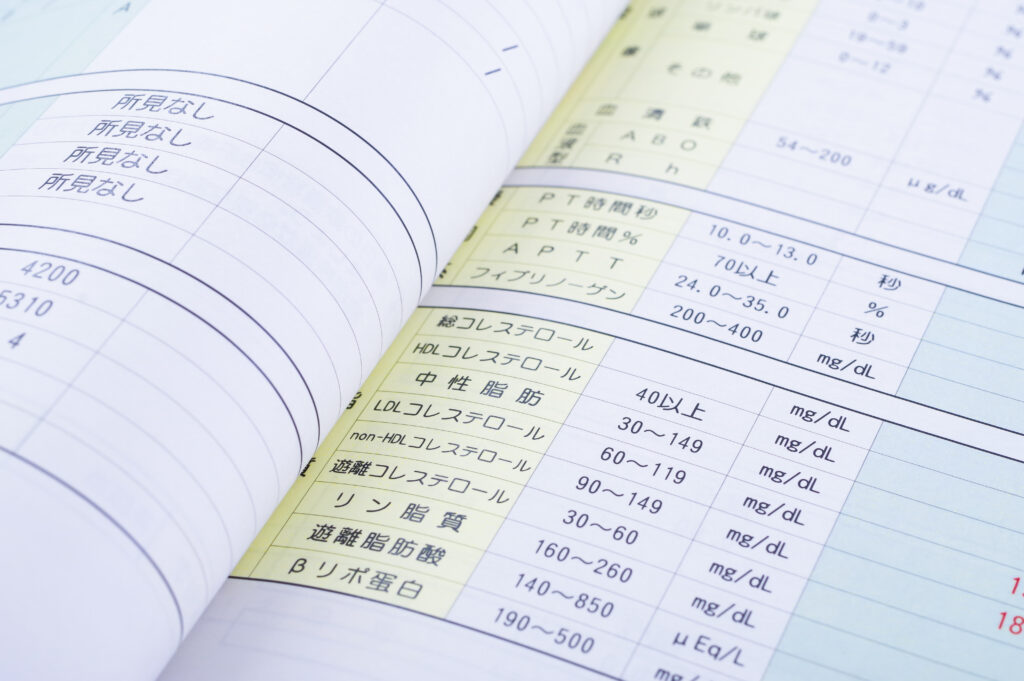 A
所見なし
所見なし
所見なし
所見なし
4200
5310
4
球 0~3 %
その他 0~12 %
血清鉄 54~200 μg/dL
血液型 ABO
Rh
PT時間秒 10.0~13.0 秒
PT時間% 70以上 %
APTT 24.0~35.0 秒
フィブリノーゲン 200~400 mg/dL
総コレステロール mg/dL
HDLコレステロール 40以上 mg/dL
中性脂肪 30~149 mg/dL
LDLコレステロール 60~119 mg/dL
non-HDLコレステロール 90~149 mg/dL
遊離コレステロール 30~60 mg/dL
リン脂質 160~260 mg/dL
遊離脂肪酸 140~850 μEq/L
βリポ蛋白 190~500 mg/
18